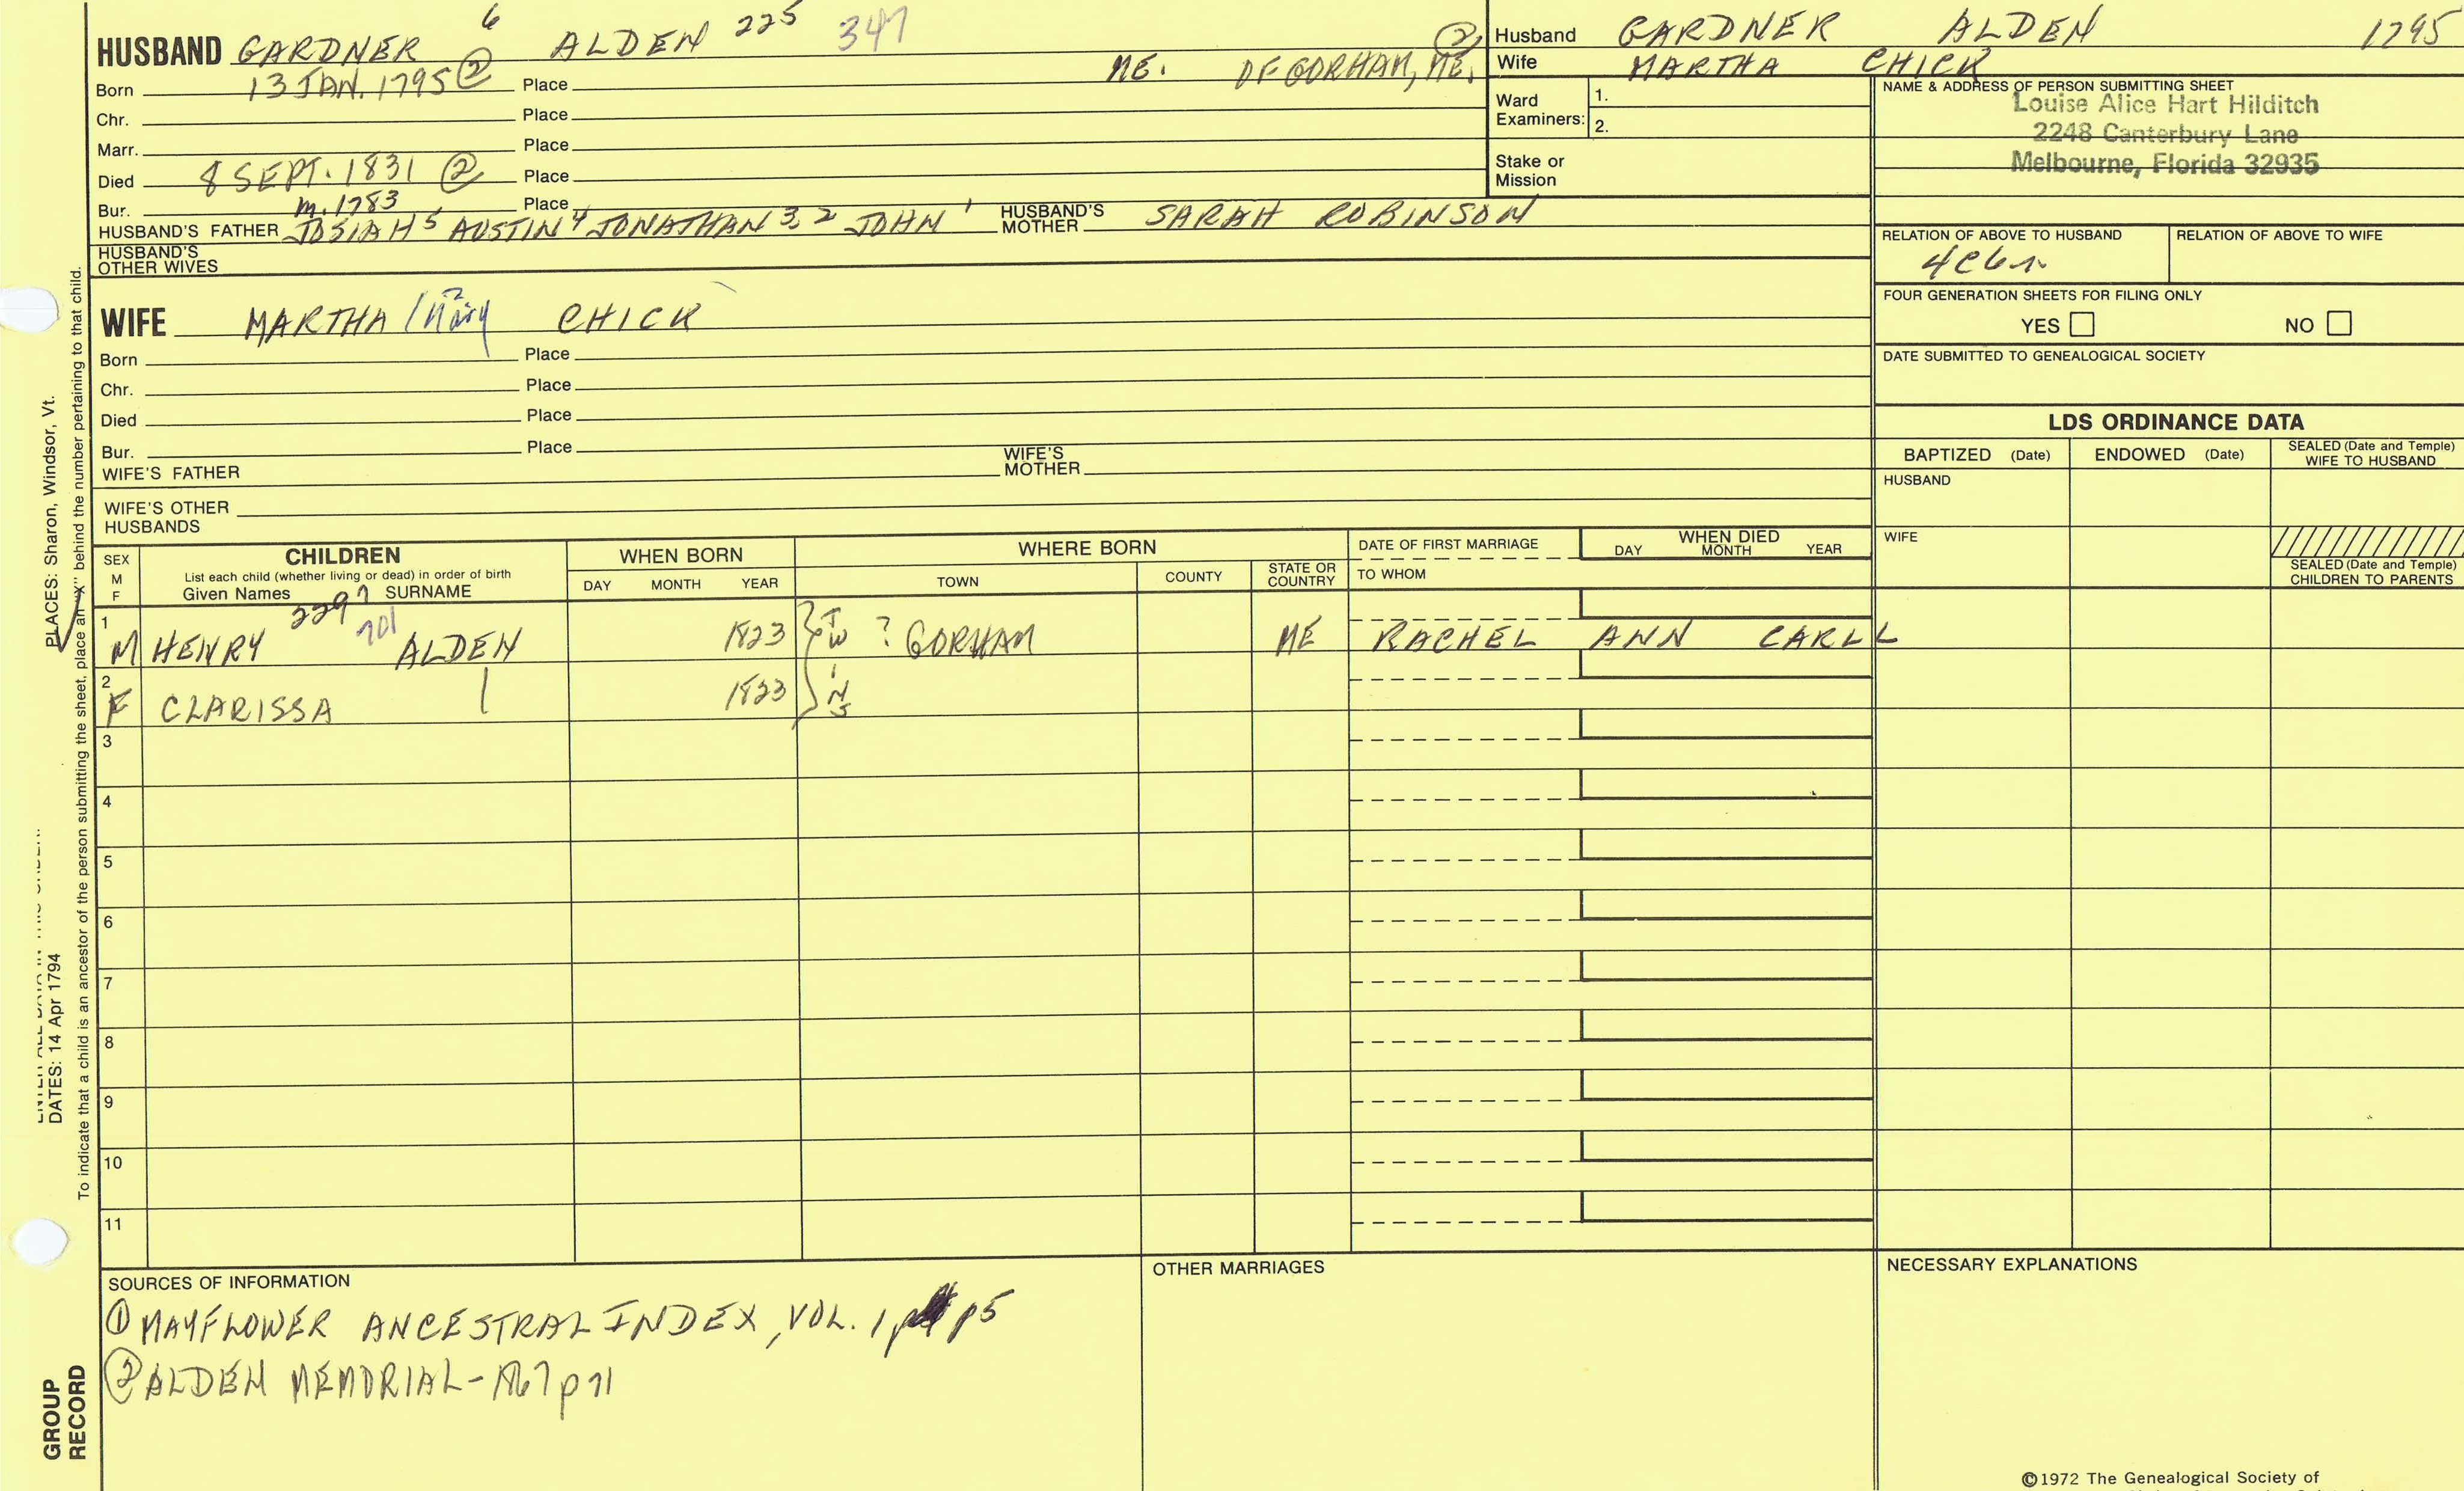 HUSBAND GARDNER 6 ALDEN 225 347
Born 13 JAN. 1795 ② Place ME. OF GORHAM, ME. ②
Chr. Place
Marr. Place
Died 8 SEPT. 1831 ② Place
Bur. m. 1783 Place
HUSBAND'S FATHER JOSIAH 5 AUSTIN 4 JONATHAN 3, 2 JOHN 1 HUSBAND'S MOTHER SARAH ROBINSON
HUSBAND'S OTHER WIVES
WIFE MARTHA / Mary ? CHICK
Born Place
Chr. Place
Died Place
Bur. Place
WIFE'S FATHER WIFE'S MOTHER
WIFE'S OTHER HUSBANDS
Husband GARDNER ALDEN 1795
Wife MARTHA CHICK
Ward Examiners: 1.
2.
Stake or Mission
NAME & ADDRESS OF PERSON SUBMITTING SHEET
Louise Alice Hart Hilditch
2248 Canterbury Lane
Melbourne, Florida 32935
RELATION OF ABOVE TO HUSBAND RELATION OF ABOVE TO WIFE
4C6r
FOUR GENERATION SHEETS FOR FILING ONLY
YES NO
DATE SUBMITTED TO GENEALOGICAL SOCIETY
LDS ORDINANCE DATA
BAPTIZED (Date) ENDOWED (Date) SEALED (Date and Temple) WIFE TO HUSBAND
HUSBAND
WIFE
SEALED (Date and Temple) CHILDREN TO PARENTS
SEX M F CHILDREN List each child (whether living or dead) in order of birth Given Names SURNAME
WHEN BORN DAY MONTH YEAR
WHERE BORN TOWN COUNTY STATE OR COUNTRY
DATE OF FIRST MARRIAGE TO WHOM
WHEN DIED DAY MONTH YEAR
1 M HENRY 2297 701 ALDEN 1823 TW ? GORHAM ME RACHEL ANN CARLL
2 F CLARISSA 1823 INS
3
4
5
6
7
8
9
10
11
SOURCES OF INFORMATION
① MAYFLOWER ANCESTRAL INDEX, VOL. 1, p5
② ALDEN MEMORIAL - 1867 p 71
OTHER MARRIAGES
NECESSARY EXPLANATIONS
©1972 The Genealogical Society of
PLACES: Sharon, Windsor, Vt.
DATES: 14 Apr 1794
To indicate that a child is an ancestor of the person submitting the sheet, place an "X" behind the number pertaining to that child.
GROUP
RECORD